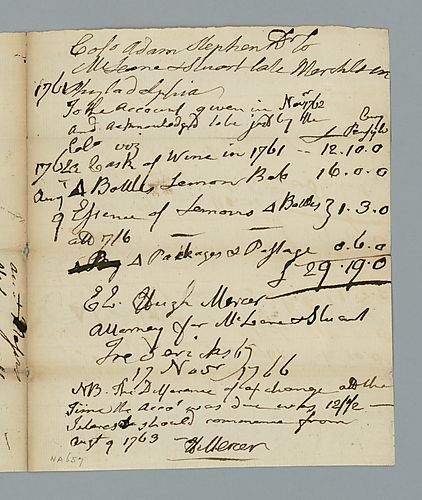 Colo Adam Stephen Dr To
McLeane & Stuart late Merchts in
1761 Philadelphia
To the Account given in Novr 1762
and acknowledged to be just by the
Colo viz
1762 a Cask of Wine in 1761 -- 12.10.0
Augt 4 Bottles Lemon 16.0.0
9 Essence of Lemons 4 Bottles } 1.3.0
at 7/6
4 Packages & Postage 0.6.0
£ 29.19.0
EE. Hugh Mercer
Attorney for McLeane & Stuart
Fredericksbg
17 Novr 1766
NB. The Difference of Exchange at the
Time the Acco was due was
Interest should commence from
Augt 9 1763
H Mercer
NA657